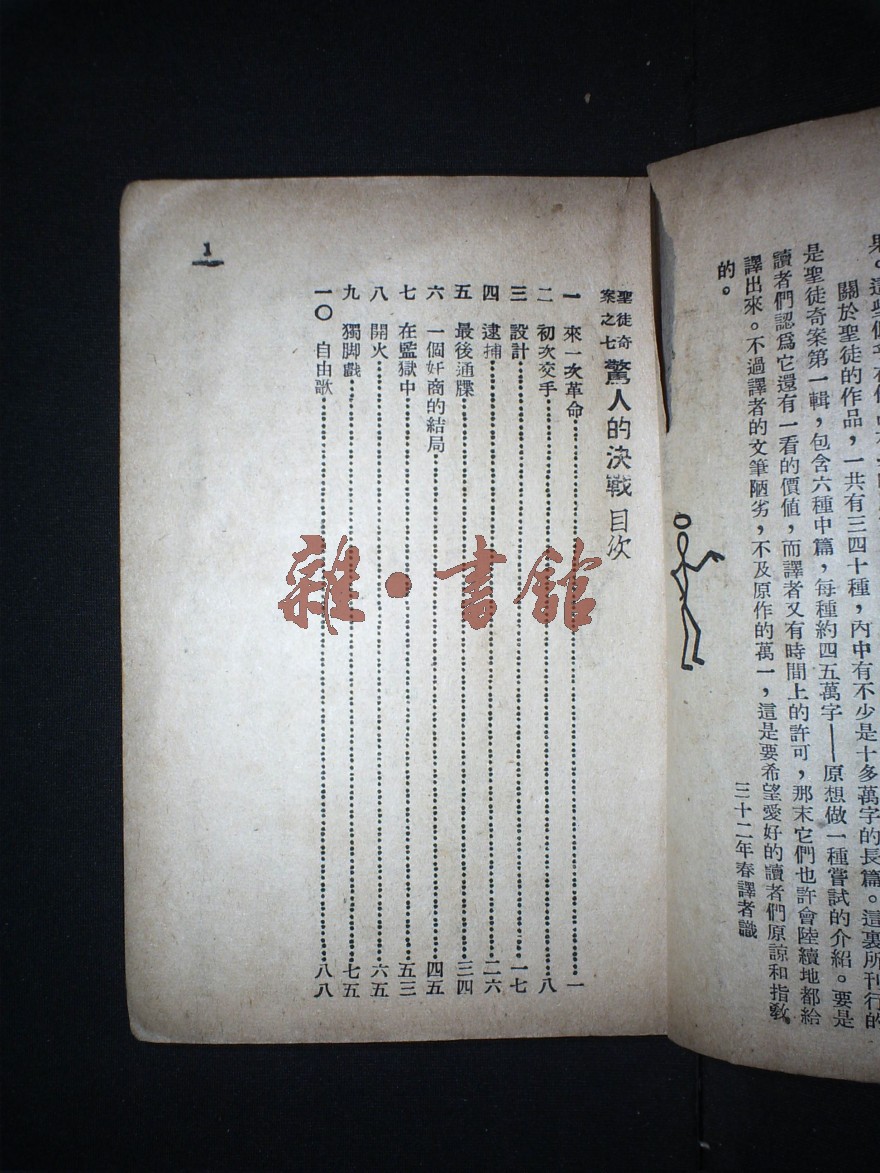 關於聖徒的作品，一共有三四十種，內中有不少是十多萬字的長篇。這裏所刊行的
是聖徒奇案第一輯，包含六種中篇，每種約四五萬字——原想做一種嘗試的介紹。要是
讀者們認爲它還有一看的價值，而譯者又有時間上的許可，那末它們也許會陸續地都給
譯出來。不過譯者的文筆陋劣，不及原作的萬一，這是要希望愛好的讀者們原諒和指教
的。
三十二年春譯者識
聖徒奇案之七 驚人的決戰 目次
一 來一次革命 一
二 初次交手 八
三 設計 一七
四 逮捕 二六
五 最後通牒 三四
六 一個奸商的結局 四五
七 在監獄中 五三
八 開火 六五
九 獨脚戲 七五
一〇 自由歌 八八
1
雜·書館